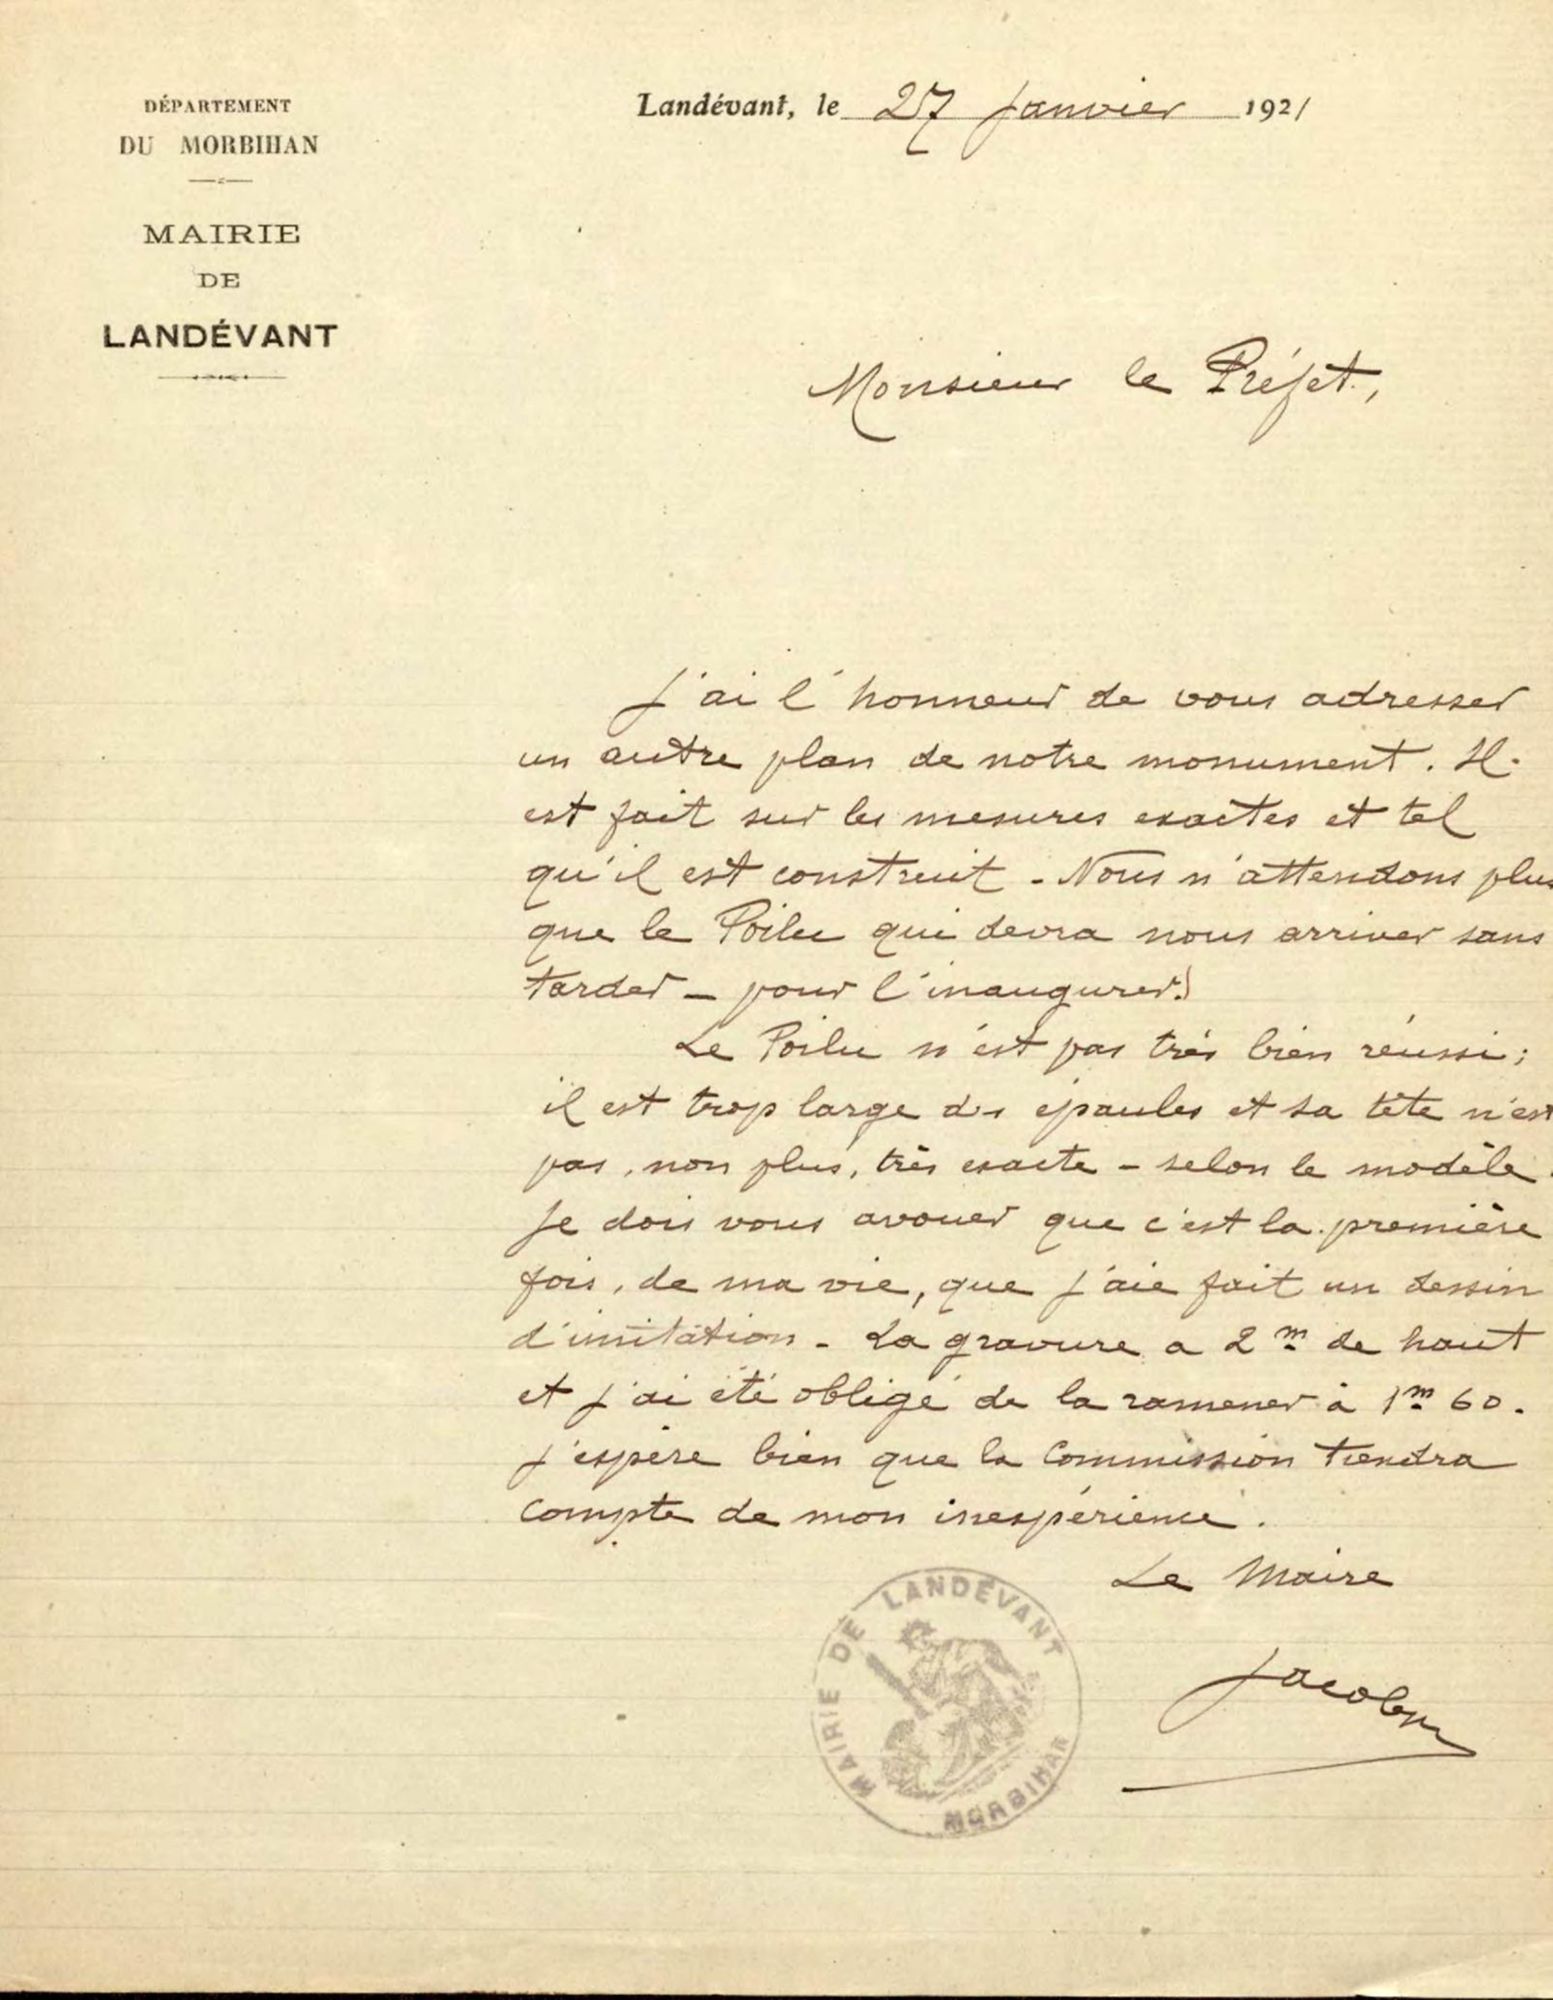 DÉPARTEMENT
DU MORBIHAN
MAIRIE
DE
LANDÉVANT
Landévant, le 27 Janvier 1921
Monsieur le Préfet,
J'ai l'honneur de vous adresser
un autre plan de notre monument. Il
est fait sur les mesures exactes et tel
qu'il est construit - Nous n'attendons plus
que le Poilu qui devra nous arriver sans
tarder - pour l'inaugurer.
Le Poilu n'est pas très bien réussi;
il est trop large des épaules et sa tête n'est
pas, non plus, très exacte - selon le modèle.
Je dois vous avouer que c'est la première
fois, de ma vie, que j'aie fait un dessin
d'imitation - La gravure a 2m de haut
et j'ai été obligé de la ramener à 1m 60.
J'espère bien que la Commission tiendra
compte de mon inexpérience.
Le Maire
MAIRIE DE LANDÉVANT
MORBIHAN